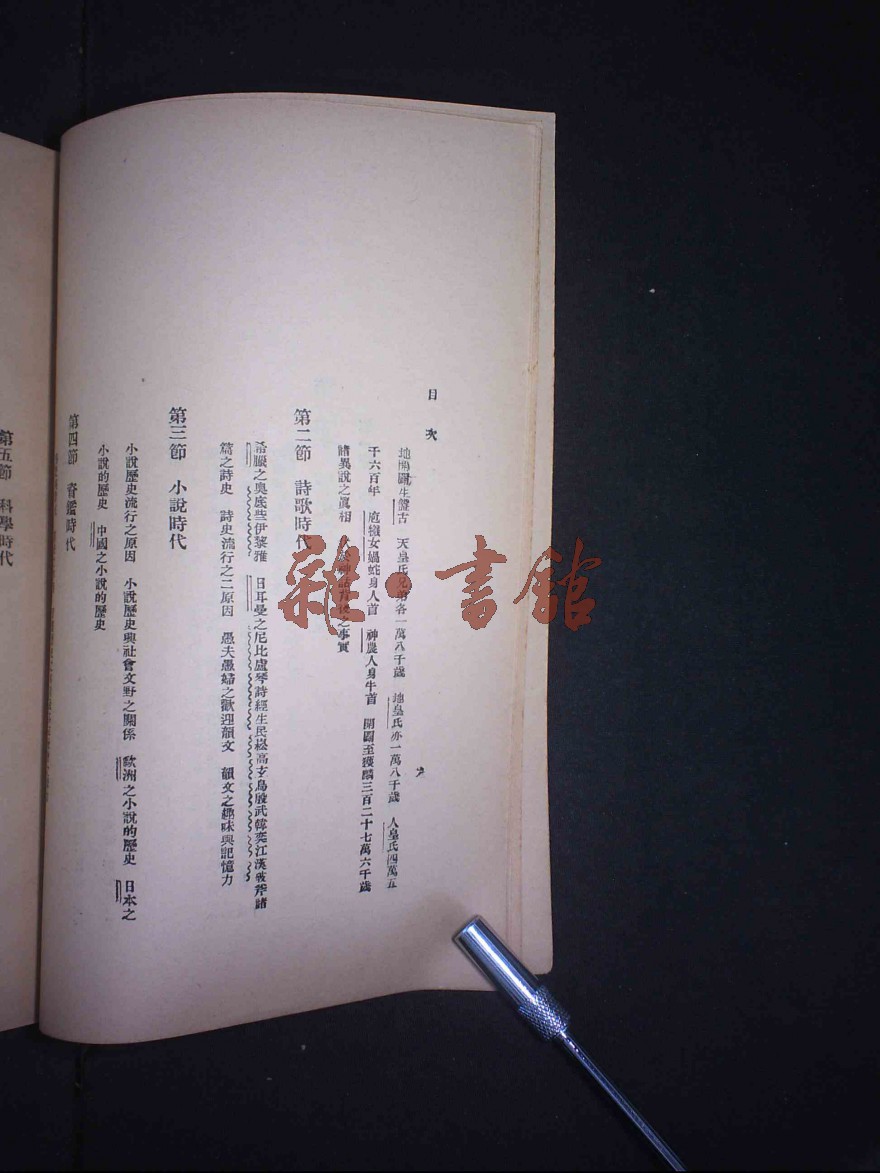 目次
九
地闢生盤古 天皇氏兄弟各一萬八千歲 地皇氏亦一萬八千歲 人皇氏四萬五
千六百年 庖犧女媧蛇身人首 神農人身牛首 開闢至獲麟三百二十七萬六千歲
諸異說之眞相 神話背後之事實
第二節 詩歌時代
希臘之奧底些伊黎雅 日耳曼之尼比盧琴詩經生民崧高玄鳥殷武韓奕江漢發斧諸
篇之詩史 詩史流行之二原因 愚夫愚婦之歡迎韻文 韻文之趣味與記憶力
第三節 小說時代
小說歷史流行之原因 小說歷史與社會文野之關係 歐洲之小說的歷史 日本之
小說的歷史 中國之小說的歷史
第四節 資鑑時代
第五節 科學時代
雜·書館